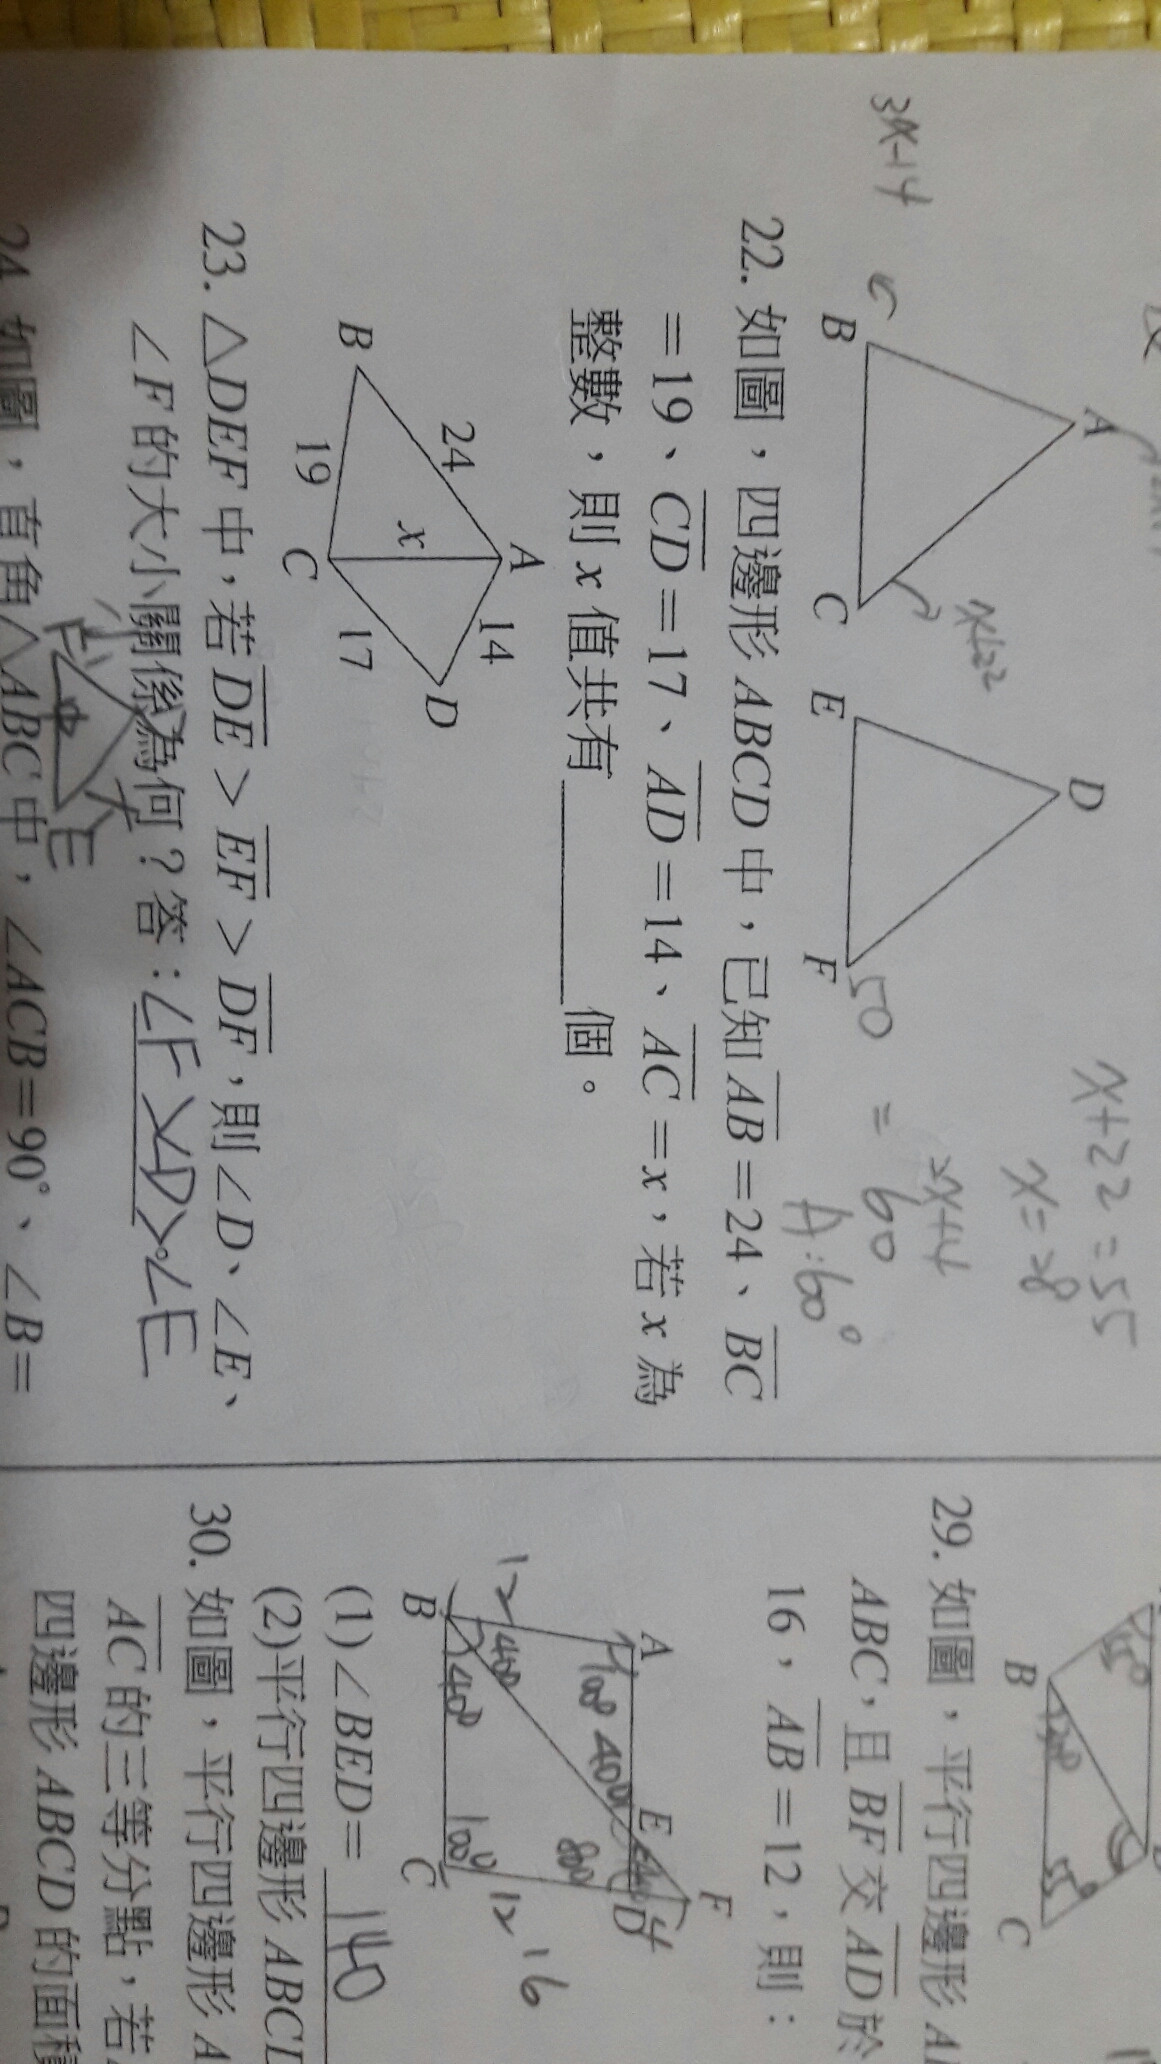 3x-14
A
B
C
x+22
D
E
F
50
x+22=55
x=28
2x+4
=60
A:60°
22. 如圖，四邊形ABCD中，已知AB=24、BC
=19、CD=17、AD=14、AC=x，若x為
整數，則x值共有 個。
A
24
14
B
x
D
19
17
C
23. △DEF中，若DE>EF>DF，則∠D、∠E、
∠F的大小關係為何？答：∠F>∠D>∠E
24. 如圖，直角△ABC中，∠ACB=90°、∠B=
55°
B
C
55°
29. 如圖，平行四邊形
ABC，且BF交AD於
16，AB=12，則：
A
E
F
100°
40°
D
12
40°
80°
12
16
40°
100°
B
C
(1)∠BED= 140
(2)平行四邊形ABC
30. 如圖，平行四邊形A
AC的三等分點，若
四邊形ABCD的面積